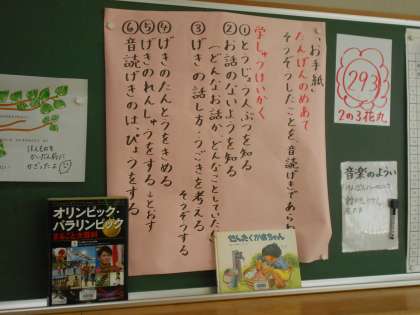 、お手紙、
たんげんのめあて
そうぞうしたことを、音読げきであらわ
学しゅうけいかく
①とうじょう人ぶつを知る
②お話のないようを知る
（どんなお話か、どんなことしていたか）
③げきの話し方・うごきを考える
そうぞうする
④げきのたんとうをきめる
⑤げきのれんしゅうをする→とおす
⑥音読げきのはっぴょうをする
293
2の3花丸
音楽のようい
ほんものを
かいだん前に
かざったよ
オリンピック・
パラリンピック
まるごと大百科
せんたくかあちゃん